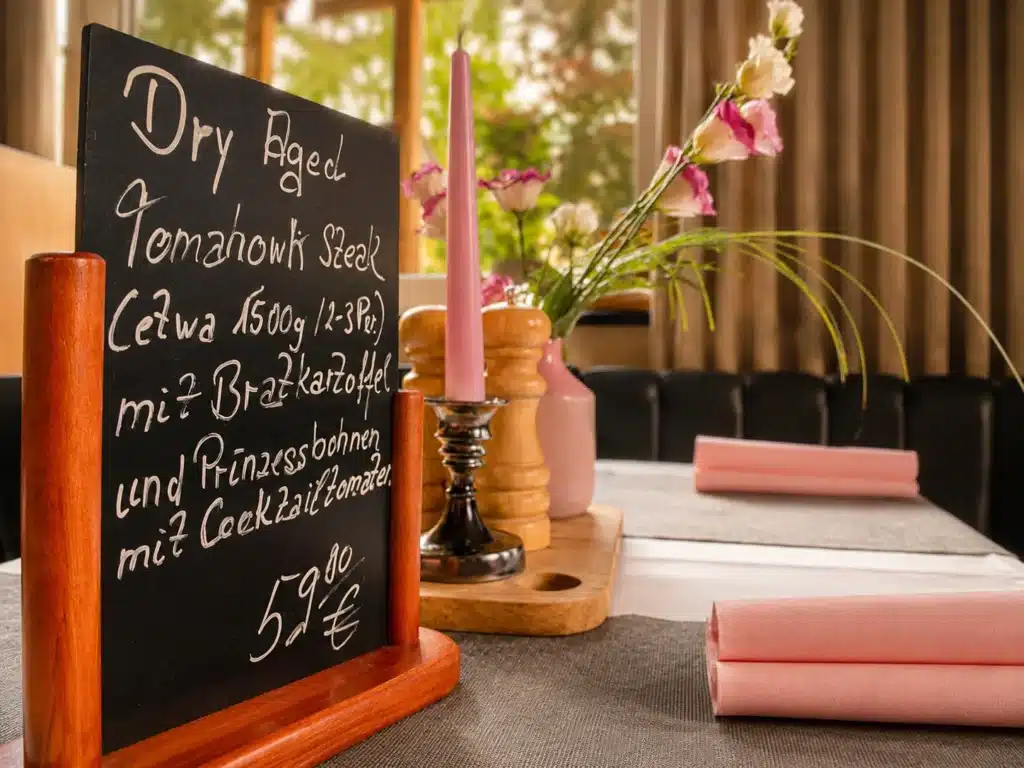 Dry Aged
Tomahowk Steak
(etwa 1500g /2-3Per)
mit Bratkartoffel
und Prinzessbohnen
mit Cocktailtomaten.
59,90 €